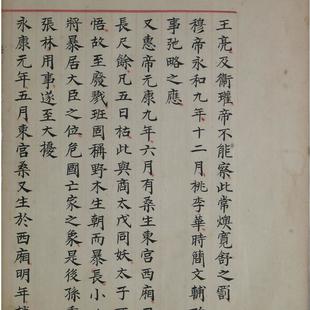 王亮及衛瓘帝不能察此常燠寬舒之罰
穆帝永和九年十二月桃李華時簡文輔
事弛略之應
又惠帝元康九年六月有桑生東宮西廂
長尺餘凡五日枯此與商太戊同妖太子
悟故至廢戮班固稱野木生朝而暴長小
將暴居大臣之位危國亡家之象是後孫
張林用事遂至大擾
永康元年五月東宮桑又生於西廂明年